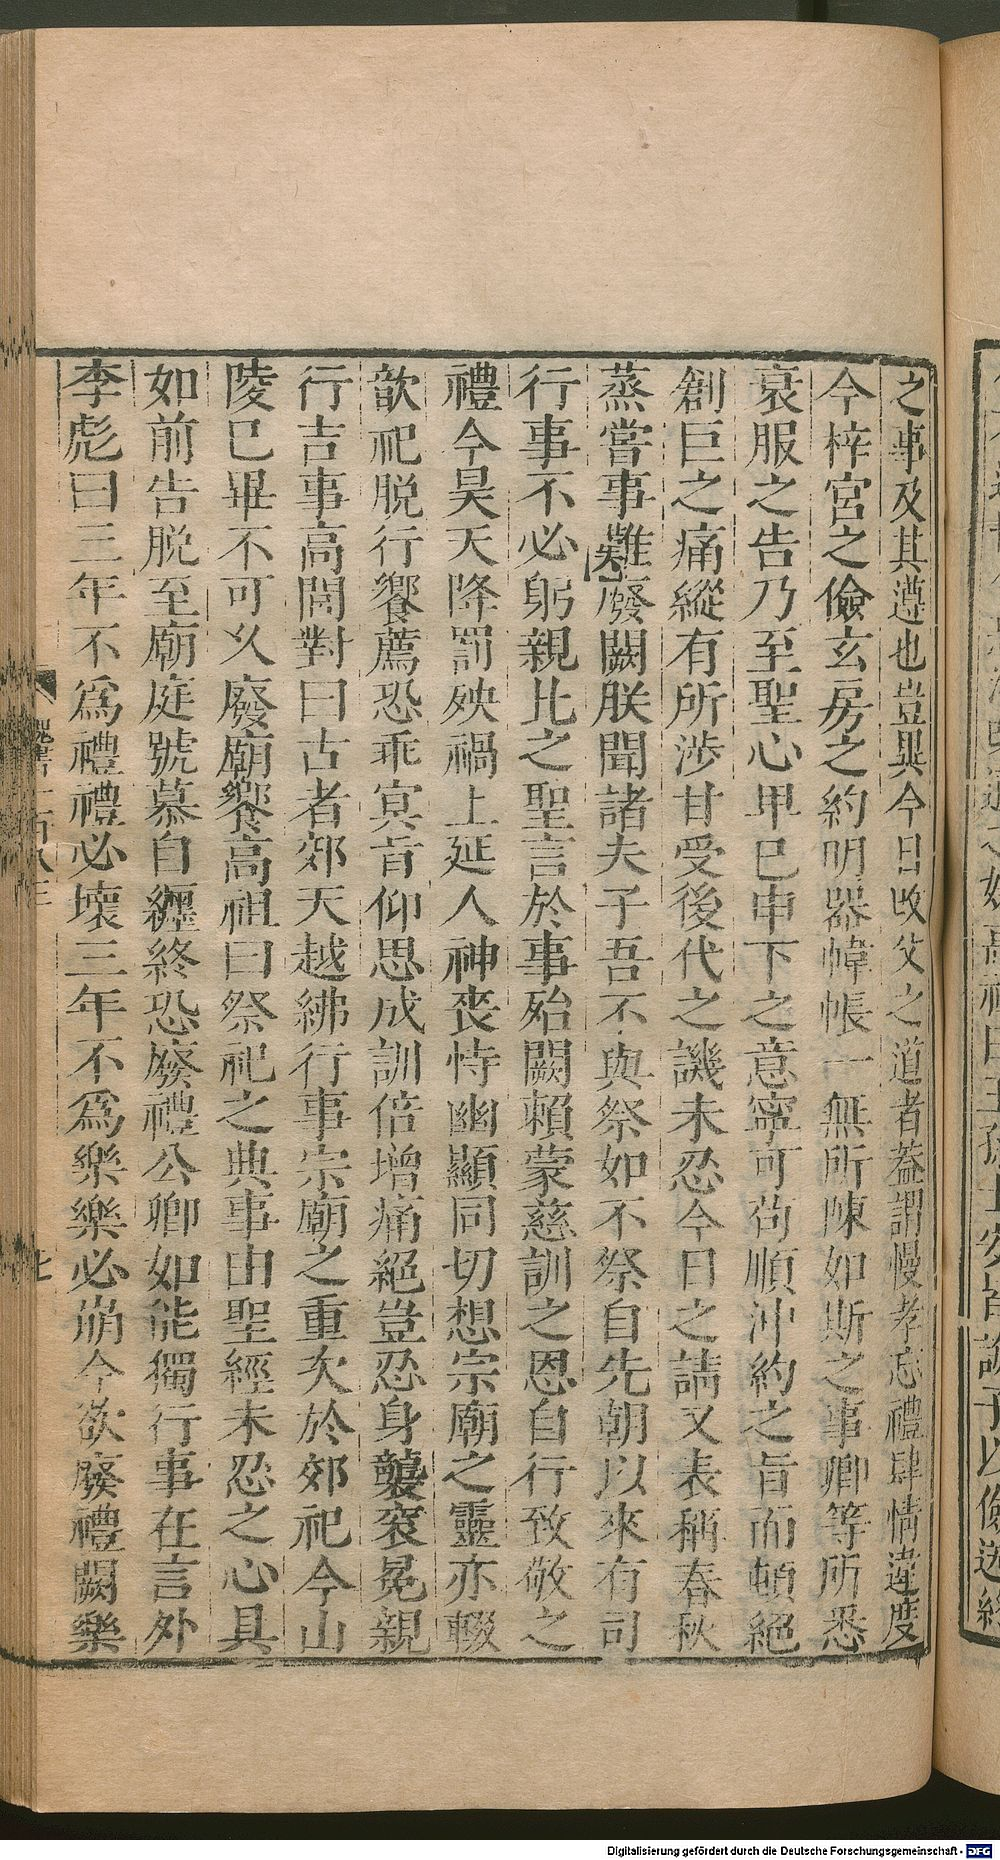 之事及其遵也豈異今日改父之道者葢謂慢孝忘禮肆情違度
今梓宮之儉玄房之約明器幃帳一無所陳如斯之事卿等所悉
衰服之告乃至聖心卑巳申下之意寧可苟順冲約之旨而頓絕
創巨之痛縱有所涉甘受後代之譏未忍今日之請又表稱春秋
蒸嘗事難廢闕朕聞諸夫子吾不與祭如不祭自先朝以來有司
行事不必躬親比之聖言於事殆闕賴蒙慈訓之恩自行致敬之
禮今昊天降罰殃禍上延人神喪恃幽顯同切想宗廟之靈亦輟
歆祀脫行饗薦恐乖冥旨仰思成訓倍增痛絕豈忍身襲袞冕親
行吉事高閭對曰古者郊天越紼行事宗廟之重次於郊祀今山
陵巳畢不可乆廢廟饗高祖曰祭祀之典事由聖經未忍之心具
如前告脫至廟庭號慕自纒終恐廢禮公卿如能獨行事在言外
李彪曰三年不爲禮禮必壞三年不爲樂樂必崩今欲廢禮闕樂
魏書一百八三
七
Digitalisierung gefördert durch die Deutsche Forschungsgemeinschaft - DFG